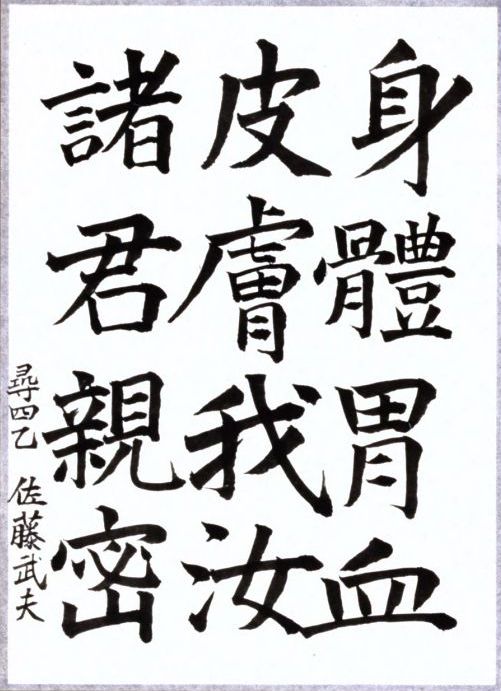 身體胃血
皮膚我汝
諸君親密
尋四乙 佐藤武夫